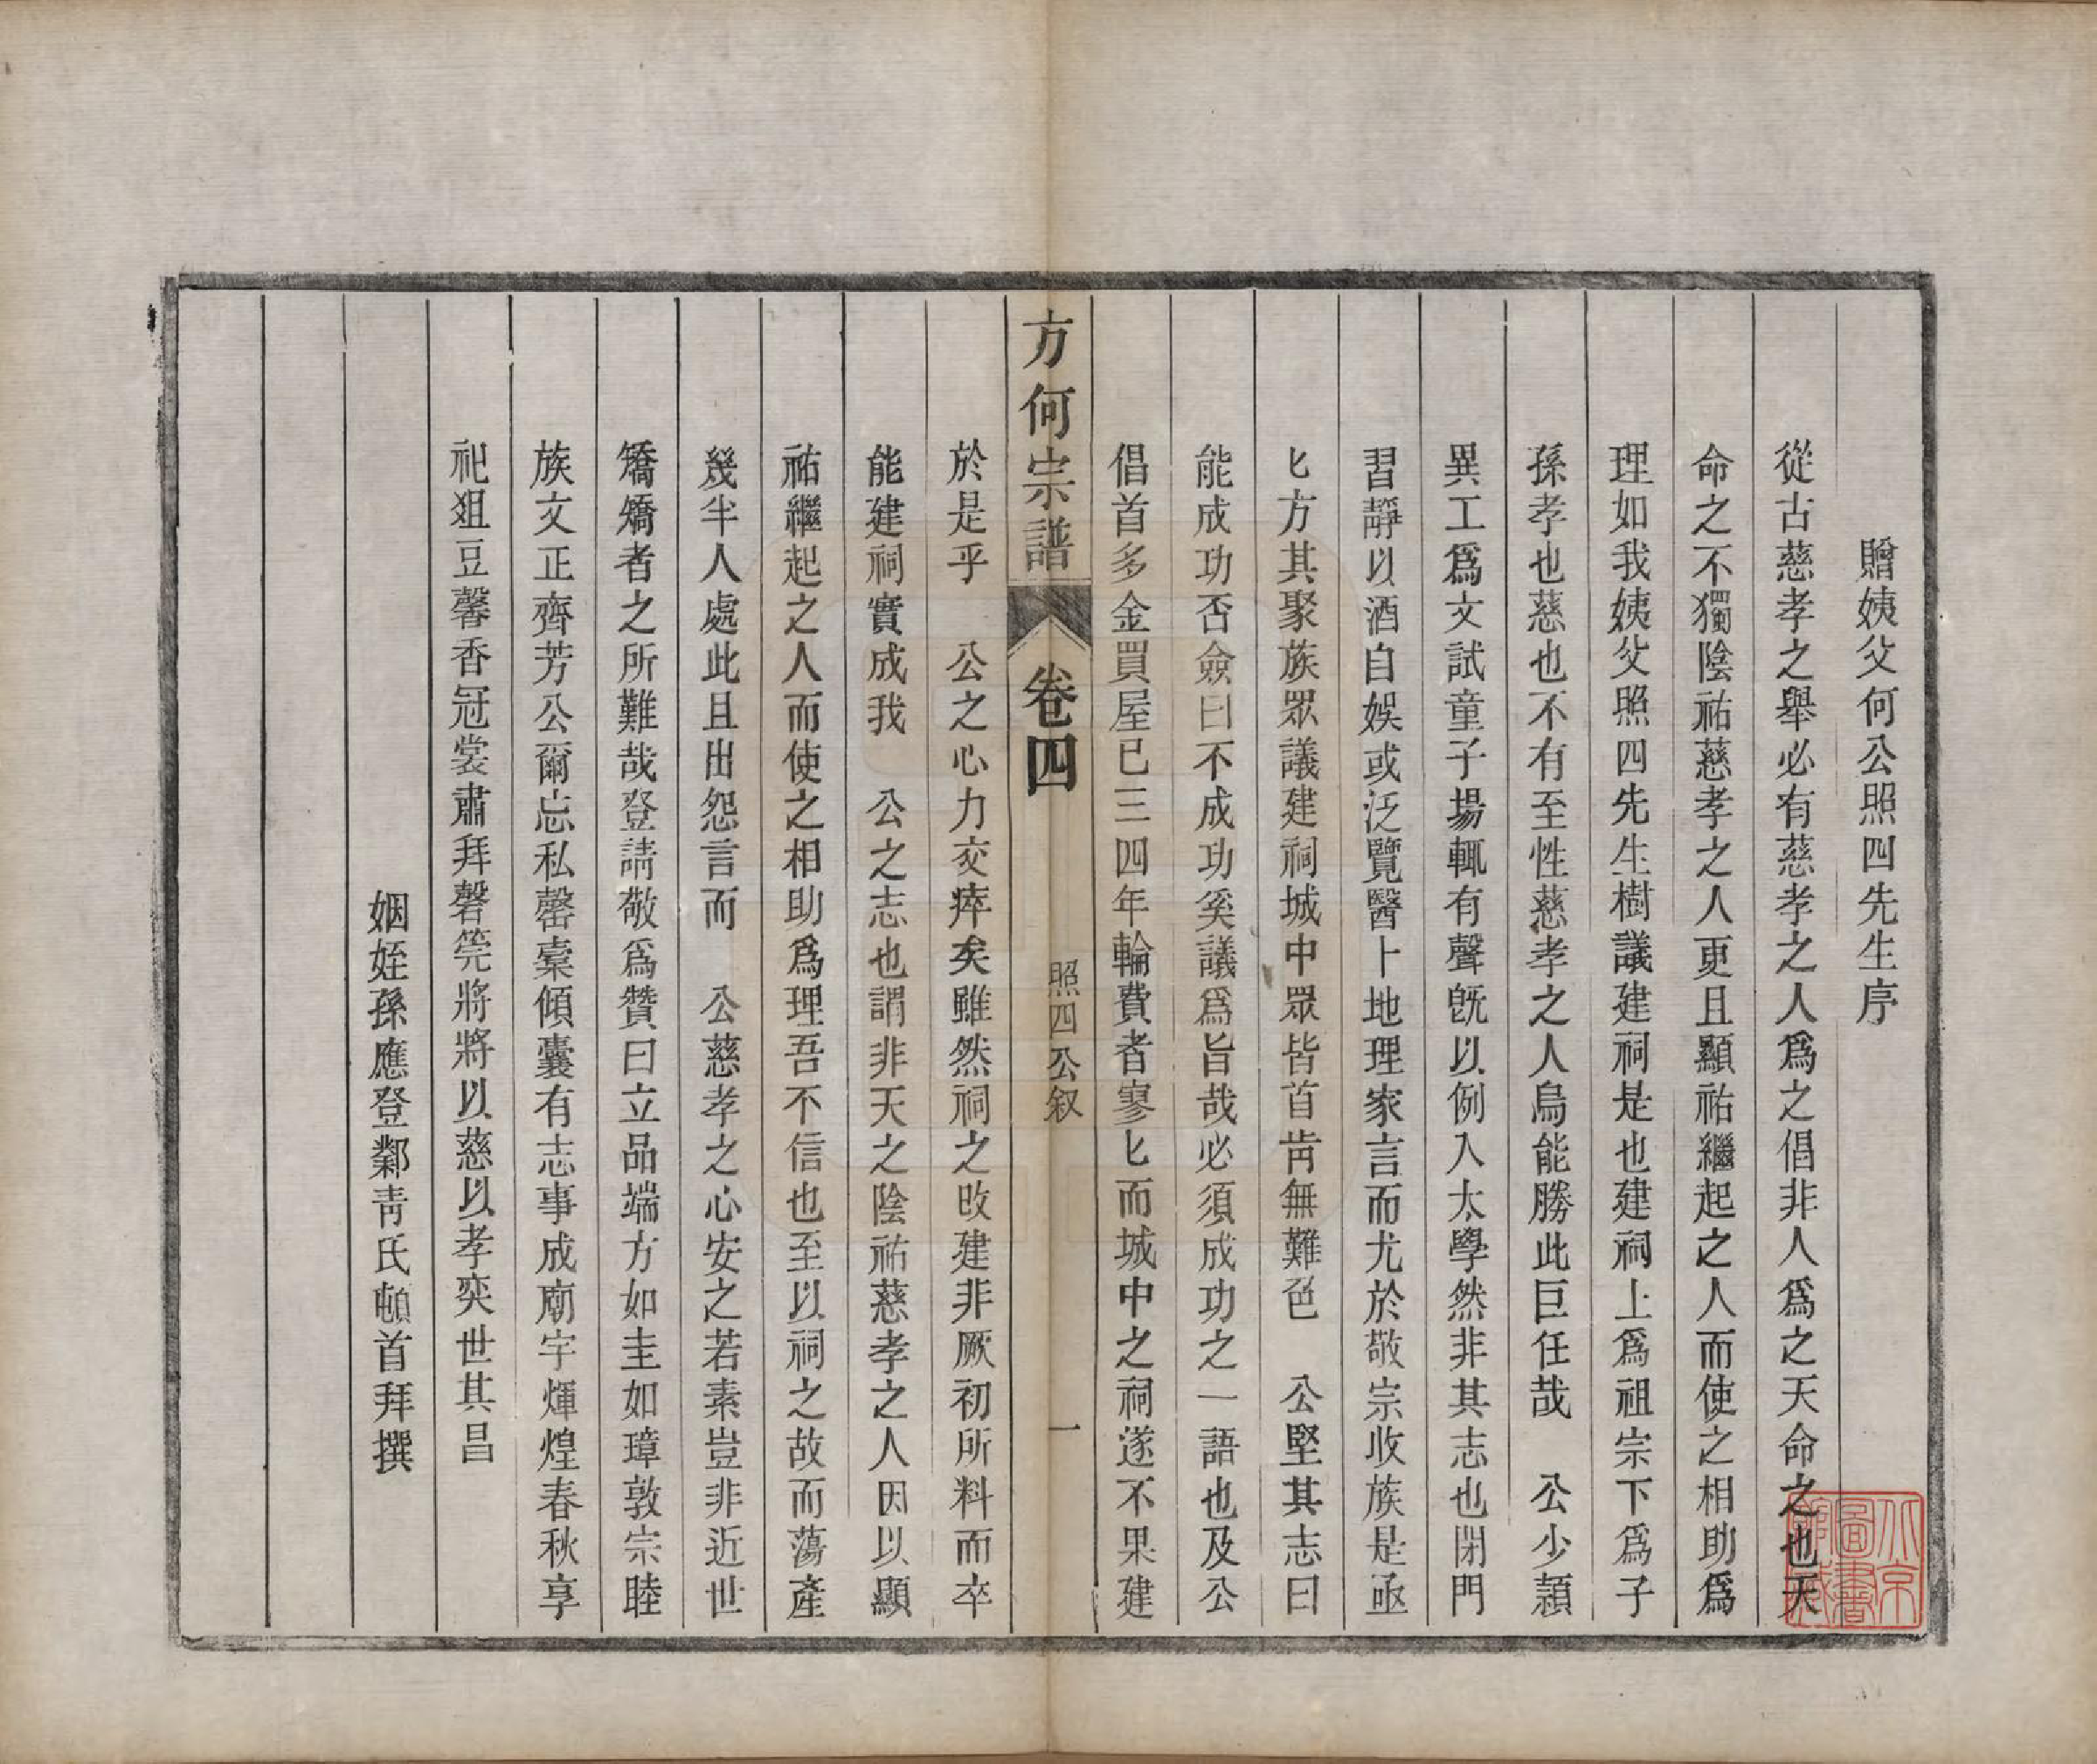 贈姨父何公照四先生序
從古慈孝之舉必有慈孝之人爲之倡非人爲之天命之也天
命之不獨陰祐慈孝之人更且顯祐繼起之人而使之相助爲
理如我姨父照四先生樹議建祠是也建祠上爲祖宗下爲子
孫孝也慈也不有至性慈孝之人烏能勝此巨任哉　公少頴
異工爲文試童子場輒有聲旣以例入太學然非其志也閉門
習靜以酒自娛或泛覽醫卜地理家言而尤於敬宗收族是亟
匕方其聚族眾議建祠城中眾皆首肯無難色　公堅其志曰
能成功否僉曰不成功奚議爲旨哉必須成功之一語也及公
倡首多金買屋已三四年輪費者寥匕而城中之祠遂不果建
方何宗譜
卷四
照四公叙
一
於是乎　公之心力交瘁矣雖然祠之改建非厥初所料而卒
能建祠實成我　公之志也謂非天之陰祐慈孝之人因以顯
祐繼起之人而使之相助爲理吾不信也至以祠之故而蕩產
幾半人處此且出怨言而　公慈孝之心安之若素豈非近世
矯矯者之所難哉登請敬爲贊曰立品端方如圭如璋敦宗睦
族文正齊芳公爾忘私罄橐傾囊有志事成廟宇煇煌春秋享
祀俎豆馨香冠裳肅拜磬筦將將以慈以孝奕世其昌
姻姪孫應登鄴靑氏頓首拜撰
北京
圖書
館藏